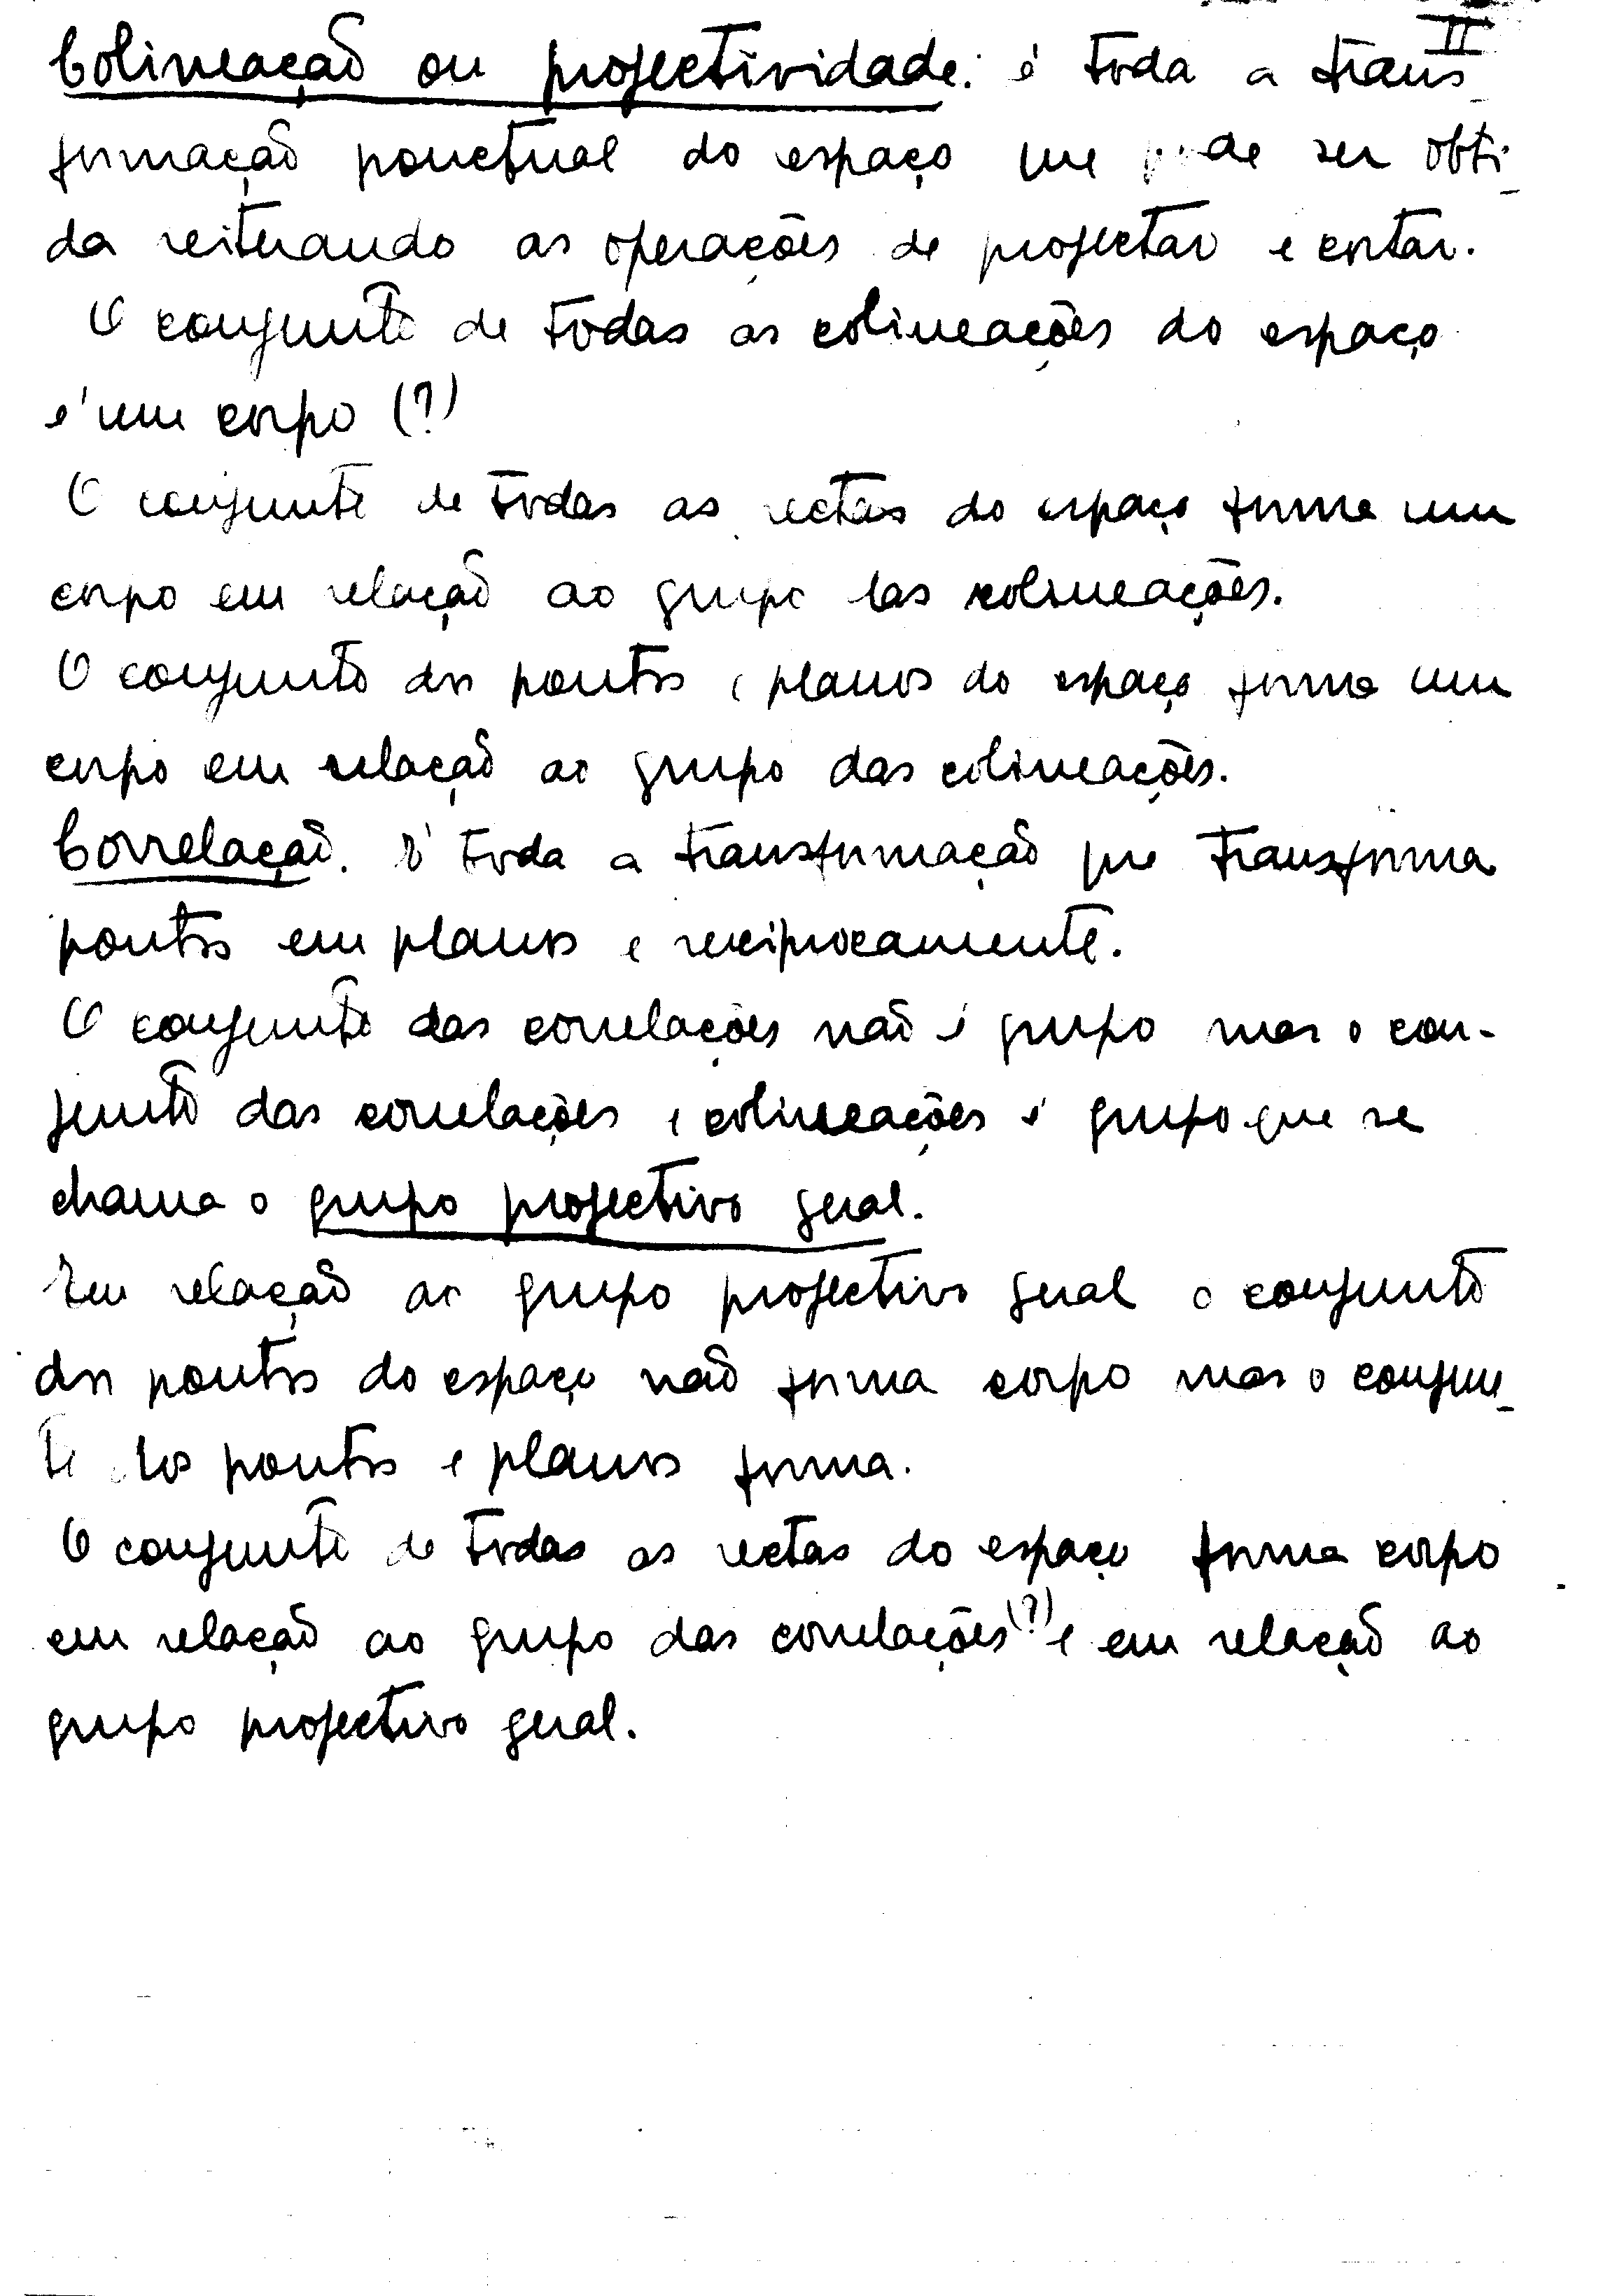 II
Colineação ou projectividade: é toda a trans_
formação ponctual do espaço que pode ser obti_
da reiterando as operações de projectar e cortar.
O conjunto de todas as colineações do espaço
é um corpo (?)
O conjunto de todas as rectas do espaço forma um
corpo em relação ao grupo das colineações.
O conjunto dos pontos e planos do espaço forma um
corpo em relação ao grupo das colineações.
Correlação. É toda a transformação que transforma
pontos em planos e reciprocamente.
O conjunto das correlações não é grupo mas o con-
junto das correlações e colineações é grupo que se
chama o grupo projectivo geral.
Em relação ao grupo projectivo geral o conjunto
dos pontos do espaço não forma corpo mas o conjun_
to dos pontos e planos forma.
O conjunto de todas as rectas do espaço forma corpo
em relação ao grupo das correlações (?) e em relação ao
grupo projectivo geral.